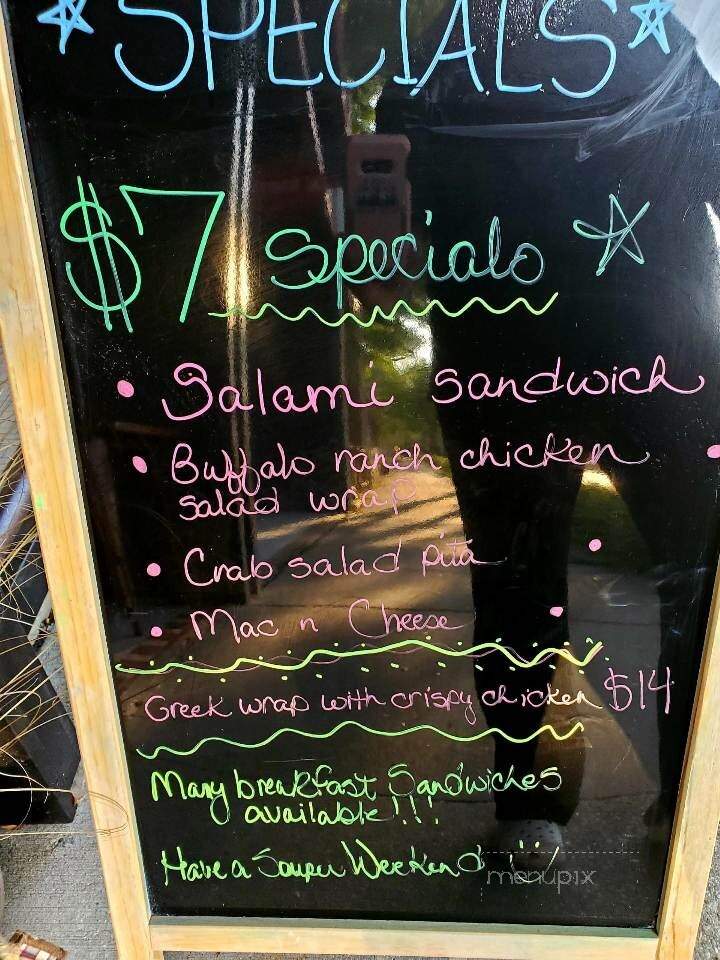 * SPECIALS *
$7 Specials
• Salami sandwich
• Buffalo ranch chicken •
salad wrap
• Crab salad pita •
• Mac n Cheese •
Greek wrap with crispy chicken $14
Many breakfast Sandwiches
available!!!
Have a Souper Weekend
menupix